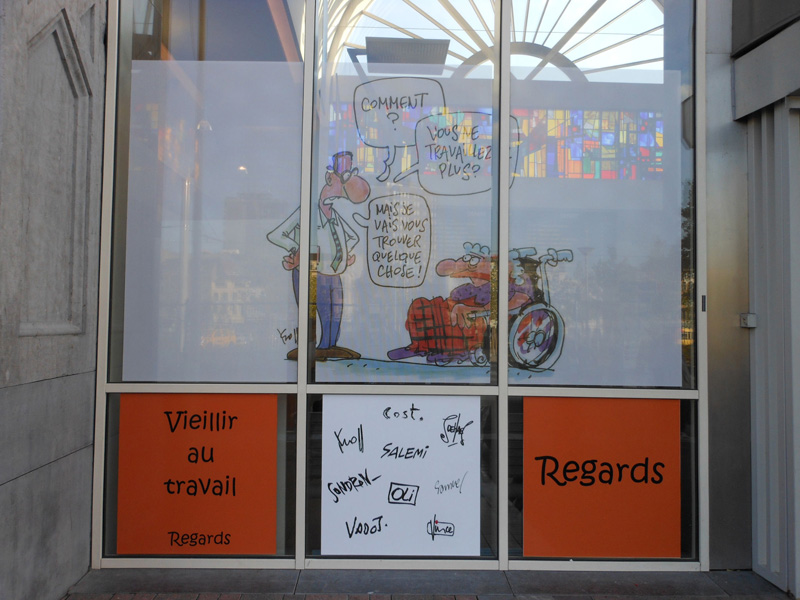 COMMENT
?
VOUS NE
TRAVAILLEZ
PLUS?
MAIS JE
VAIS VOUS
TROUVER
QUELQUE
CHOSE!
Kroll
Vieillir
au
travail
Regards
Cost.
Kroll
SALEMI
SONDRON
OLI
Samuel
VADOT.
Vince
Regards